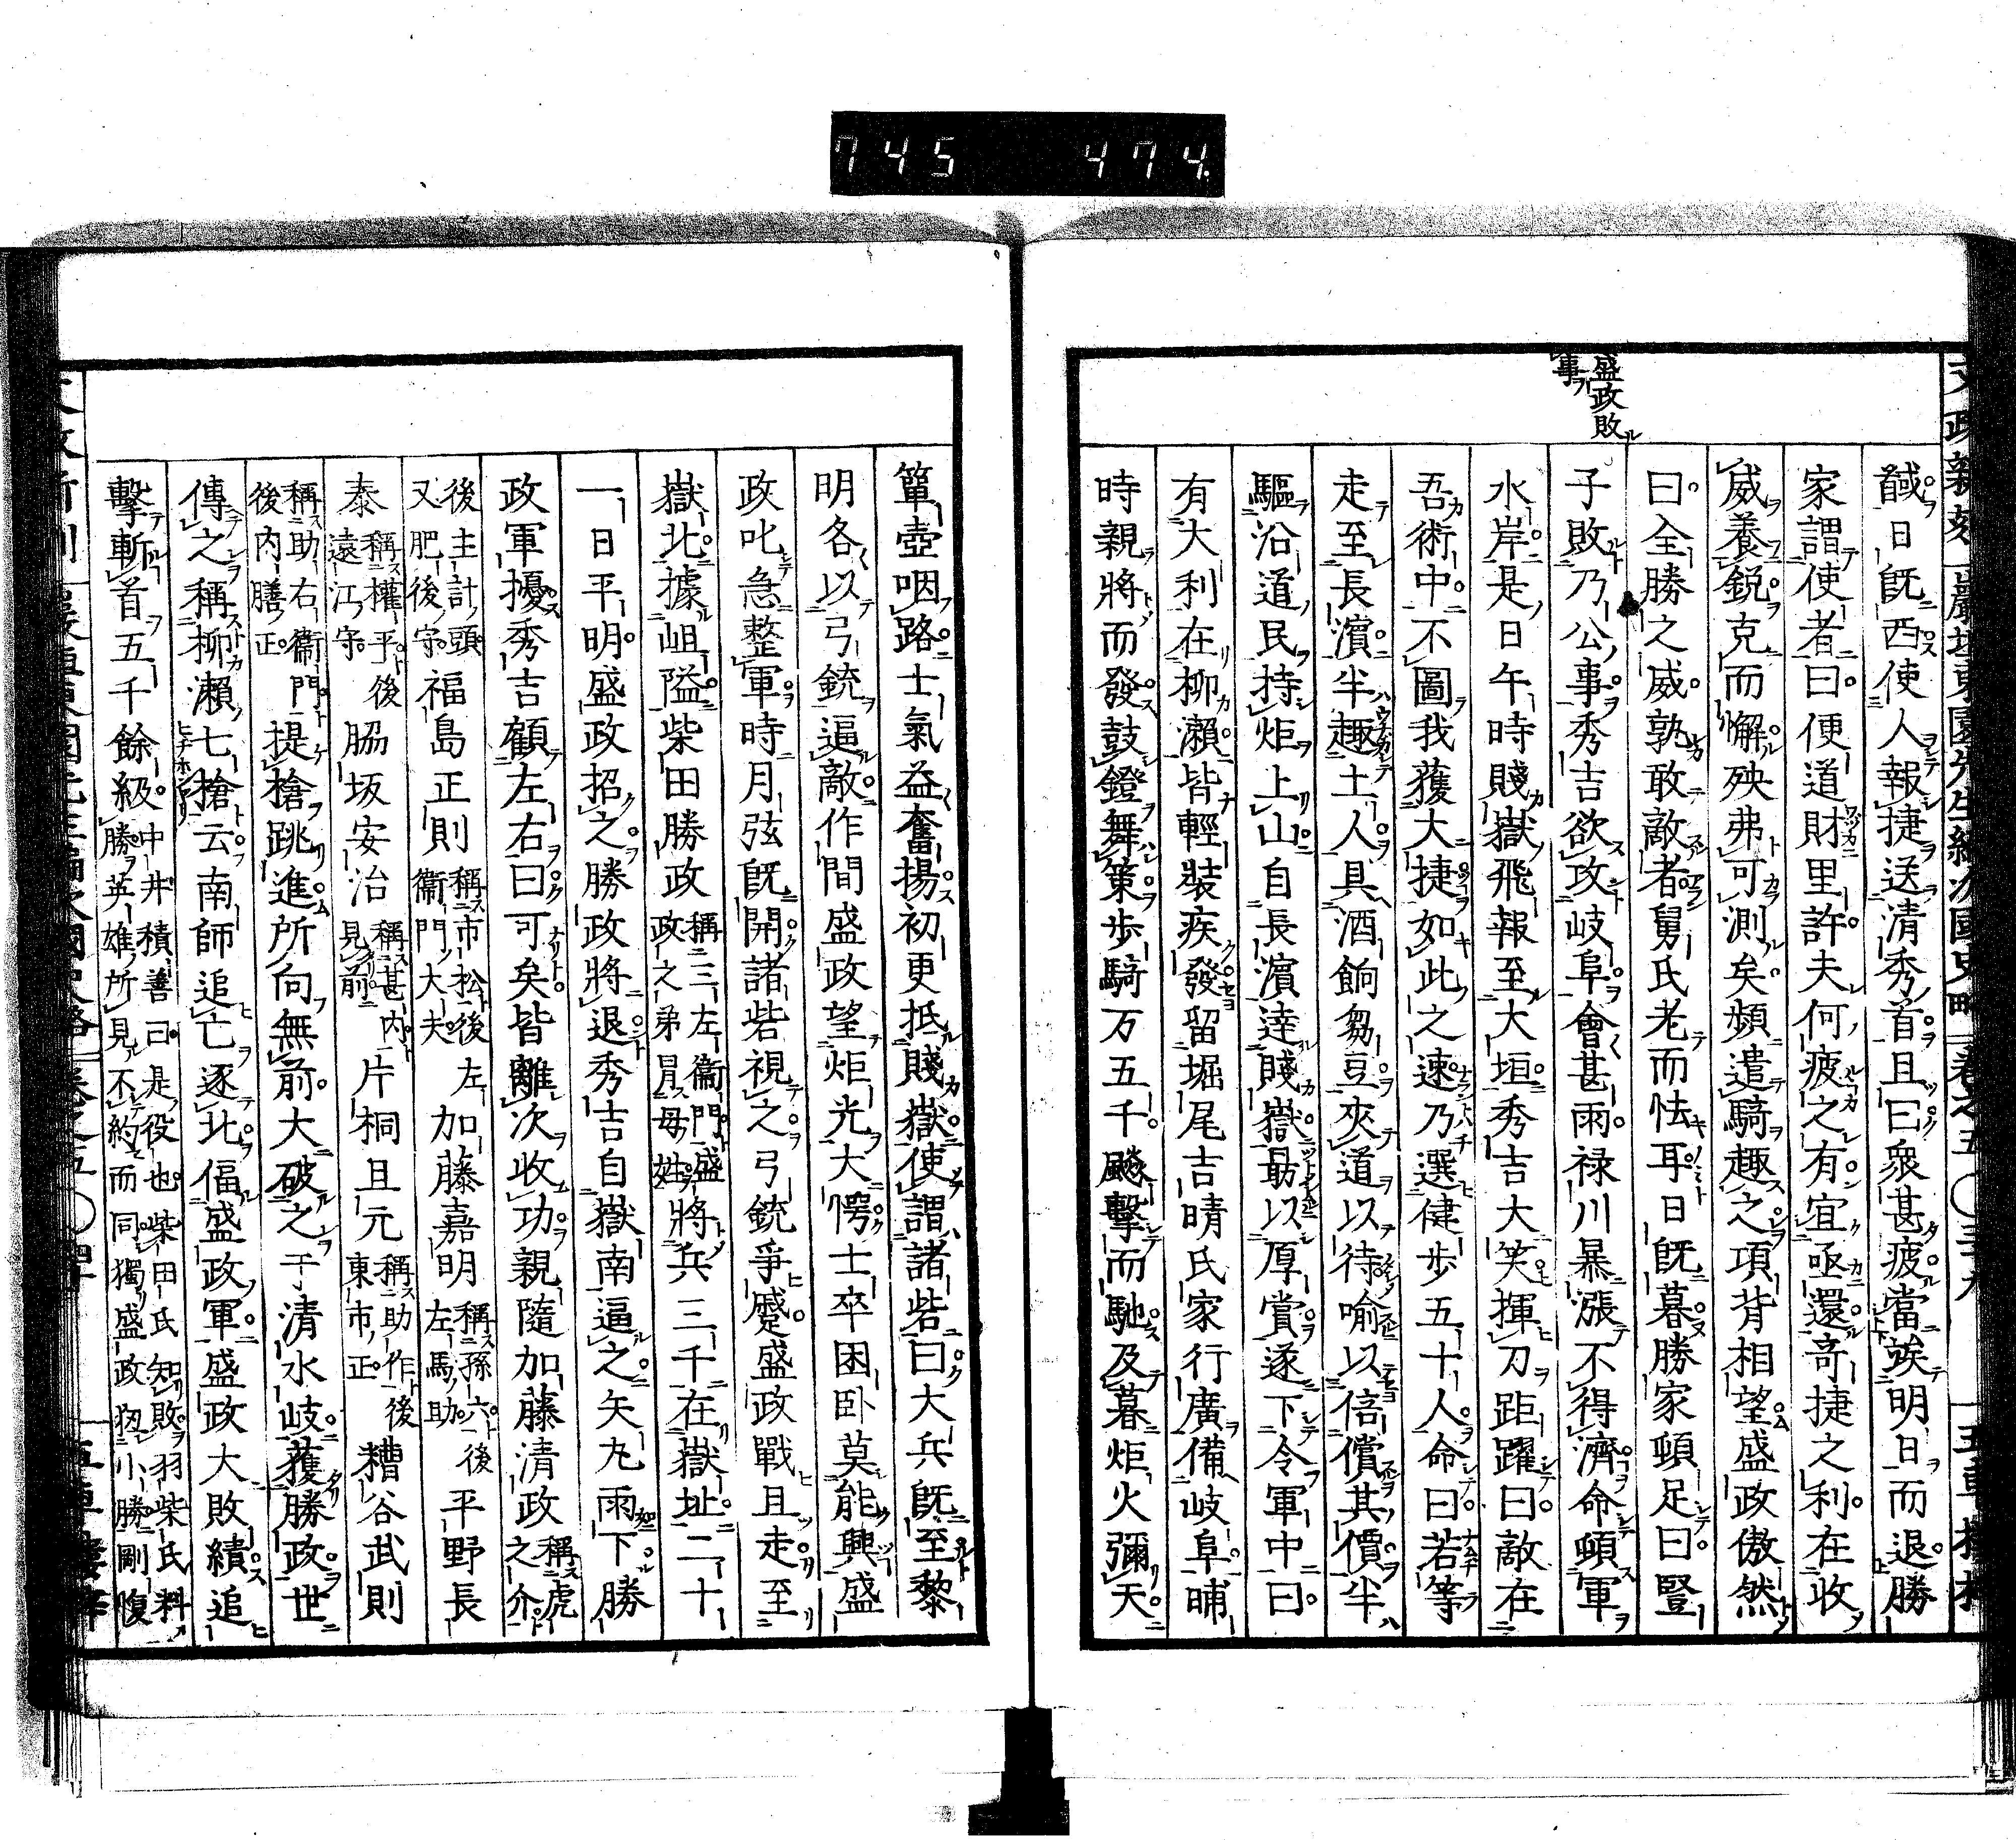 745 474.
盛政敗
事
馘日既西使人報捷送清秀首且曰衆甚疲當竢明日而退勝
家謂使者曰便道財里許夫何疲之有宜亟還奇捷之利在收
威養鋭克而懈殃弗可測矣頻遣騎趣之項背相望盛政傲然
曰全勝之威孰敢敵者舅氏老而怯耳日既暮勝家頓足曰豎
子敗乃公事秀吉欲攻岐阜會甚雨禄川暴漲不得濟命頓軍
水岸是日午時賤嶽飛報至大垣秀吉大笑揮刀距躍曰敵在
吾術中不圖我獲大捷如此之速乃選健歩五十人命曰若等
走至長濱半趣土人具酒餉芻豆夾道以待喻以倍償其價半
驅沿道民持炬上山自長濱逹賤嶽勗以厚賞遂下令軍中曰
有大利在柳瀬皆輕裝疾發留堀尾吉晴氏家行廣備岐阜晡
時親將而發鼓鐙舞策歩騎万五千飈擊而馳及暮炬火彌天
簞壺咽路士氣益奮揚初更抵賤嶽使謂諸砦曰大兵既至黎
明各以弓銃逼敵作間盛政望炬光大愕士卒困卧莫能興盛
政叱急整軍時月弦既開諸砦視之弓銃爭蹙盛政戰且走至
嶽北據岨隘柴田勝政稱三左衞門盛政之弟冒母姓將兵三千在嶽址二十
一日平明盛政招之勝政將退秀吉自嶽南逼之矢丸雨下勝
政軍擾秀吉顧左右曰可矣皆離次收功親隨加藤清政稱虎之介
後主計頭又肥後守福島正則稱市松後左衞門大夫加藤嘉明稱孫六後左馬助平野長
泰稱權平後遠江守脇坂安治稱甚内見前片桐且元稱助作後東市正糟谷武則
稱助右衞門後内膳正提槍跳進所向無前大破之于清水岐獲勝政世
傳之稱柳瀬七槍云南師追亡逐北偪盛政軍盛政大敗績追
擊斬首五千餘級中井積善曰是役也柴田氏知敗羽柴氏料勝英雄所見不約而同獨盛政狃小勝剛愎